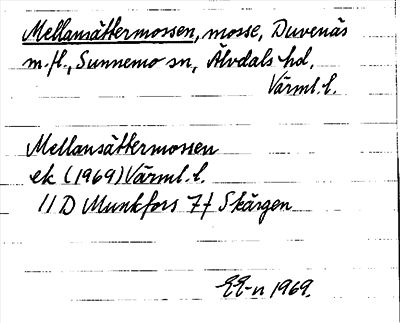 Mellansättermossen, mosse, Duvenäs
m.fl., Sunnemo sn, Älvdals hd,
Värml. l.
Mellansättermossen
ek (1969) Värml. l.
11 D Munkfors 7f Skärgen
1969.